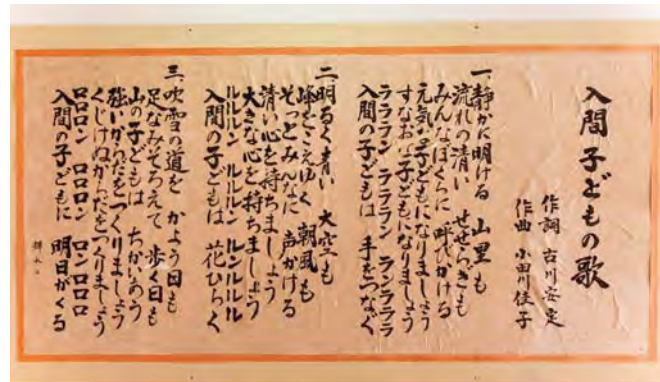 入間子どもの歌
作詞 古川安定
作曲 小田川佳子
一、静かに明ける 山里も
流れの清い せせらぎも
みんなぼくらに 呼びかける
元気な子どもになりましょう
すなおな子どもになりましょう
ラララン ラララン ランラララ
入間の子どもは 手をつなぐ
二、明るく青い 大空も
峰をこえゆく 朝風も
そっとみんなに 声かける
清い心を持ちましょう
大きな心を持ちましょう
ルルルン ルルルン ルンルルル
入間の子どもは 花ひらく
三、吹雪の道を かよう日も
足なみそろえて 歩く日も
山の子どもは ちかいあう
強いからだをつくりましょう
くじけぬからだをつくりましょう
ロロロン ロロロン ロンロロロ
入間の子どもに 明日がくる